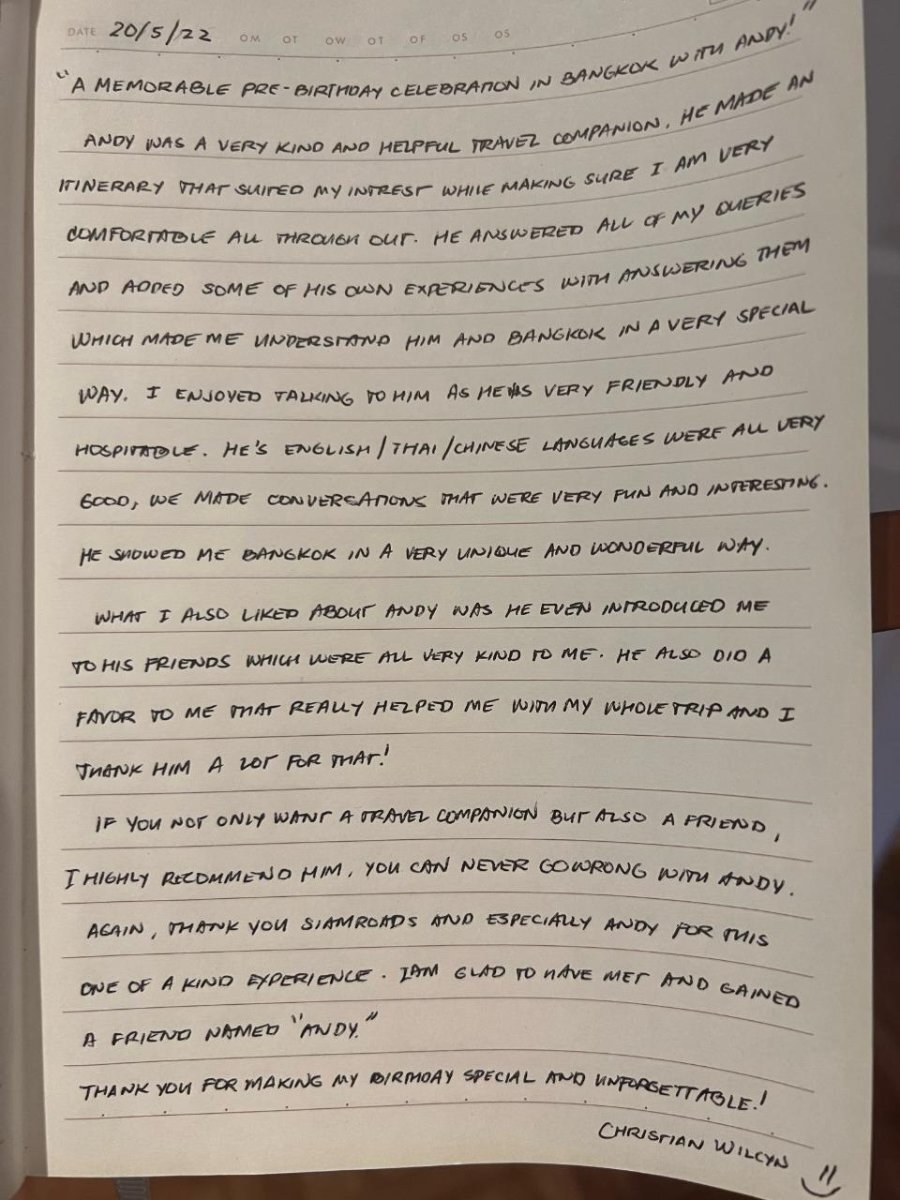 DATE 20/5/22 OM OT OW OT OF OS OS
"A MEMORABLE PRE-BIRTHDAY CELEBRATION IN BANGKOK WITH ANDY!"
ANDY WAS A VERY KIND AND HELPFUL TRAVEL COMPANION. HE MADE AN
ITINERARY THAT SUITED MY INTREST WHILE MAKING SURE I AM VERY
COMFORTABLE ALL THROUGH OUT. HE ANSWERED ALL OF MY QUERIES
AND ADDED SOME OF HIS OWN EXPERIENCES WITH ANSWERING THEM
WHICH MADE ME UNDERSTAND HIM AND BANGKOK IN A VERY SPECIAL
WAY. I ENJOYED TALKING TO HIM AS HE IS VERY FRIENDLY AND
HOSPITABLE. HE'S ENGLISH/THAI/CHINESE LANGUAGES WERE ALL VERY
GOOD, WE MADE CONVERSATIONS THAT WERE VERY FUN AND INTERESTING.
HE SHOWED ME BANGKOK IN A VERY UNIQUE AND WONDERFUL WAY.
WHAT I ALSO LIKED ABOUT ANDY WAS HE EVEN INTRODUCED ME
TO HIS FRIENDS WHICH WERE ALL VERY KIND TO ME. HE ALSO DID A
FAVOR TO ME THAT REALLY HELPED ME WITH MY WHOLE TRIP AND I
THANK HIM A LOT FOR THAT!
IF YOU NOT ONLY WANT A TRAVEL COMPANION BUT ALSO A FRIEND,
I HIGHLY RECOMMEND HIM. YOU CAN NEVER GO WRONG WITH ANDY.
AGAIN, THANK YOU SIAMROADS AND ESPECIALLY ANDY FOR THIS
ONE OF A KIND EXPERIENCE. I AM GLAD TO HAVE MET AND GAINED
A FRIEND NAMED "ANDY."
THANK YOU FOR MAKING MY BIRTHDAY SPECIAL AND UNFORGETTABLE!
CHRISTIAN WILCYN